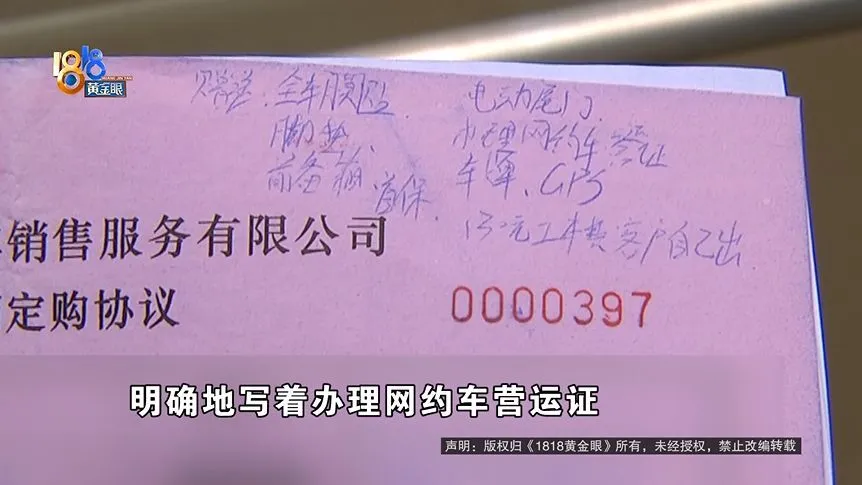 1818
黄金眼
HUANG JIN YAN
赠送、全车膜
脚垫、
前备箱 首保、
电动尾门
办理网约车 营运证
车罩、GPS
工本费客户自己出
销售服务有限公司
定购协议
0000397
明确地写着办理网约车营运证
声明:版权归《1818黄金眼》所有,未经授权,禁止改编转载